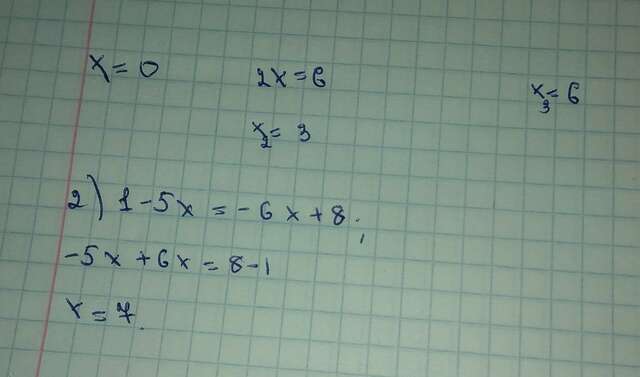 x = 0 2x = 6 x₃ = 6
x₂ = 3
2) 1 - 5x = - 6x + 8;
-5x + 6x = 8 - 1
x = 7.